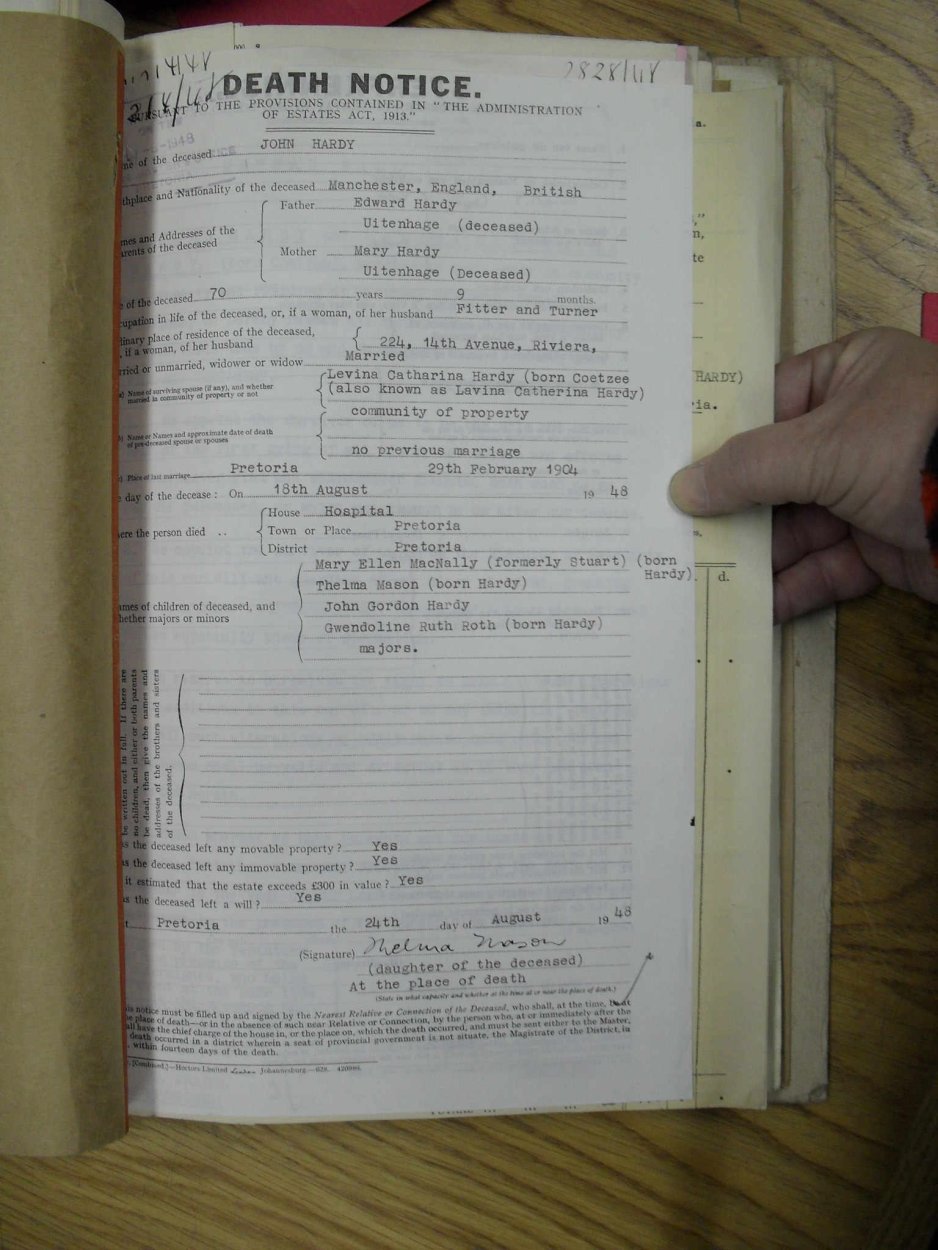 2828/48
DEATH NOTICE.
TO THE PROVISIONS CONTAINED IN "THE ADMINISTRATION
OF ESTATES ACT, 1913."
of the deceased JOHN HARDY
and Nationality of the deceased Manchester, England, British
Father Edward Hardy
Uitenhage (deceased)
and Addresses of the
of the deceased
Mother Mary Hardy
Uitenhage (Deceased)
of the deceased 70 years 9 months.
in life of the deceased, or, if a woman, of her husband Fitter and Turner
place of residence of the deceased,
if a woman, of her husband 224, 14th Avenue, Riviera,
or unmarried, widower or widow Married
Name of surviving spouse (if any), and whether
married in community of property or not
Levina Catharina Hardy (born Coetzee
(also known as Lavina Catherina Hardy)
community of property
Name or Names and approximate date of death
of pre-deceased spouse or spouses
no previous marriage
Place of last marriage Pretoria 29th February 1904
day of the decease: On 18th August 19 48
the person died .. House Hospital
Town or Place Pretoria
District Pretoria
Mary Ellen MacNally (formerly Stuart) (born
Hardy).
Thelma Mason (born Hardy)
of children of deceased, and
majors or minors
John Gordon Hardy
Gwendoline Ruth Roth (born Hardy)
majors.
be written out in full. If there are
no children, and either or both parents
be dead, then give the names and
addresses of the brothers and sisters
of the deceased.
the deceased left any movable property? Yes
the deceased left any immovable property? Yes
it estimated that the estate exceeds £300 in value? Yes
the deceased left a will? Yes
Pretoria the 24th day of August 19 48
(Signature) Thelma Mason
(daughter of the deceased)
At the place of death
(State in what capacity and whether at the time at or near the place of death.)
notice must be filled up and signed by the Nearest Relative or Connection of the Deceased, who shall, at the time, be at
place of death—or in the absence of such near Relative or Connection, by the person who, at or immediately after the
have the chief charge of the house in, or the place on, which the death occurred, and must be sent either to the Master,
death occurred in a district wherein a seat of provincial government is not situate, the Magistrate of the District, in
within fourteen days of the death.
Hortors Limited Johannesburg
HARDY)
d.